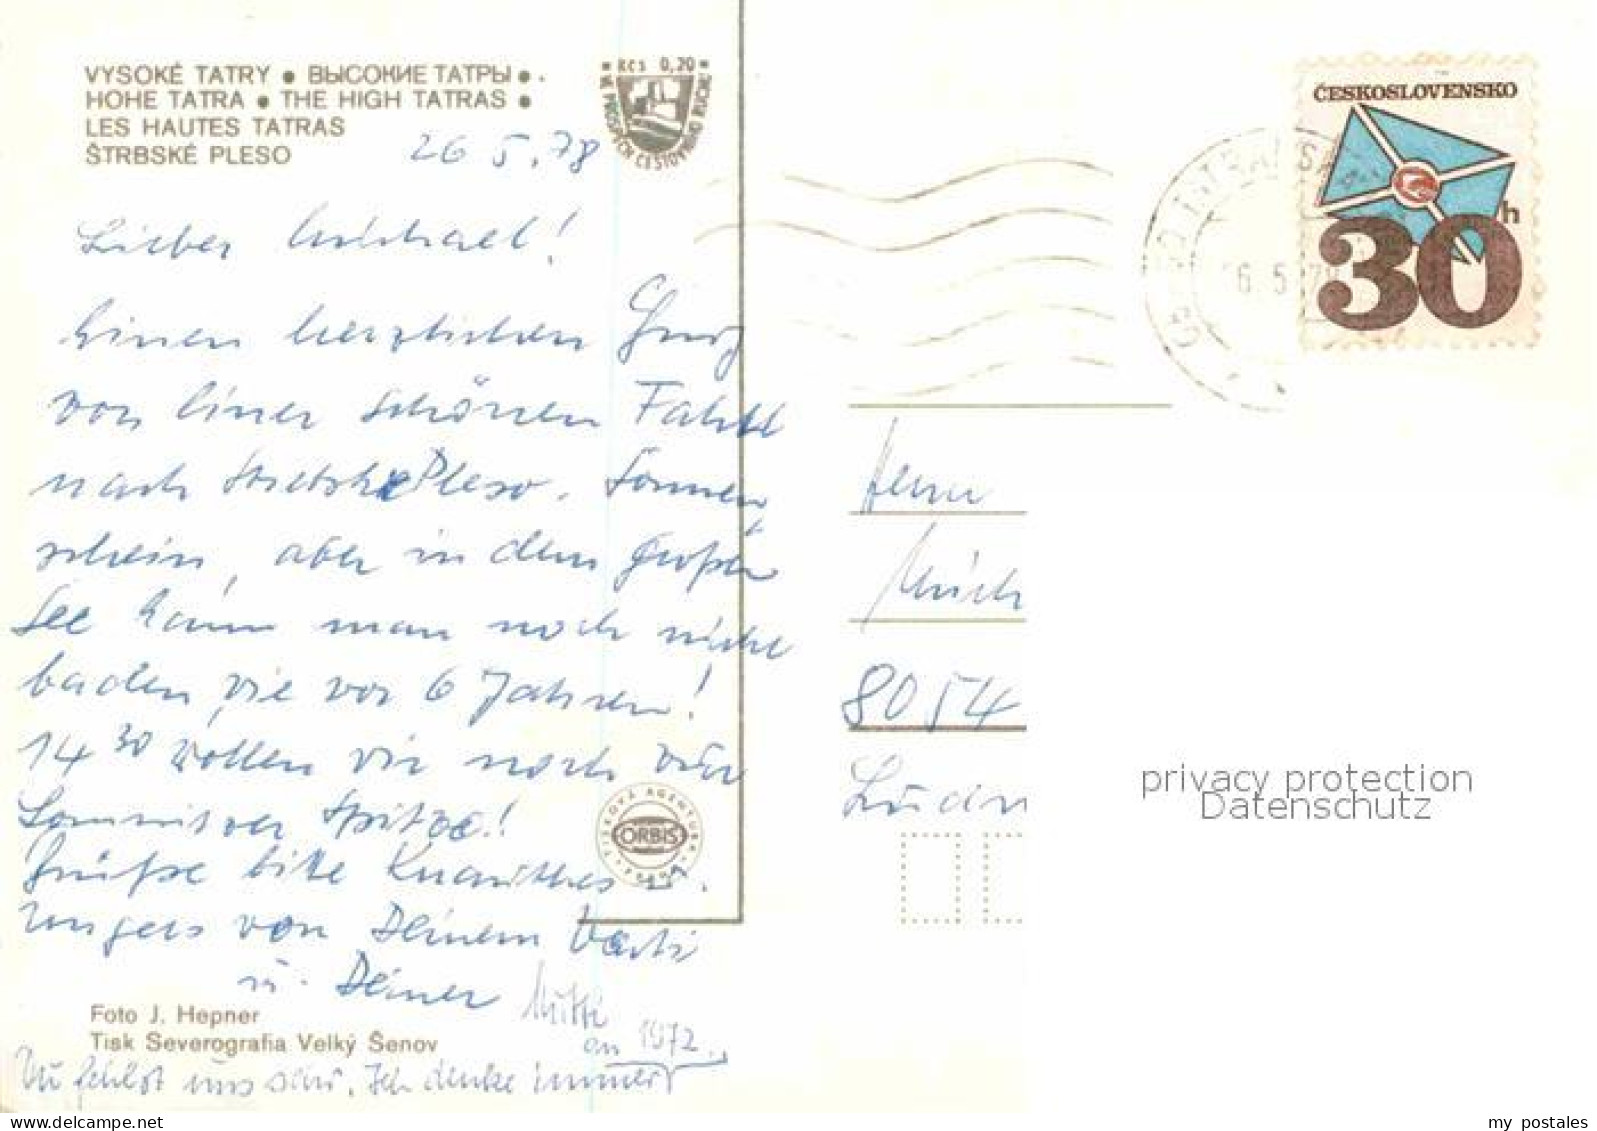 VYSOKÉ TATRY • ВЫСОКИЕ ТАТРЫ •
HOHE TATRA • THE HIGH TATRAS •
LES HAUTES TATRAS
ŠTRBSKÉ PLESO
Kčs 0,20
VE PROSPĚCH CESTOVNÍHO RUCHU
26 5. 78
Lieber Michael!
Einen herzlichen Gruß
von einer schönen Fahrt
nach Strbske Pleso. Sonnen
schein, aber in dem großen
See kann man noch nicht
baden wie vor 6 Jahren!
14 30 wollen wir noch zur
Lomnitzer Spitze!
Grüße bitte u.
Ungers von Deinem Vati
u. Deiner Mutti
Foto J. Hepner
Tisk Severografia Velký Šenov
an 1972
Du fehlst uns sehr. Ich denke immer
TISKOVÁ AGENTURA
ORBIS
PRAHA
ČESKOSLOVENSKO
30 h
6. 5. 78
Herrn
Mich
8054
privacy protection
Datenschutz
my postales